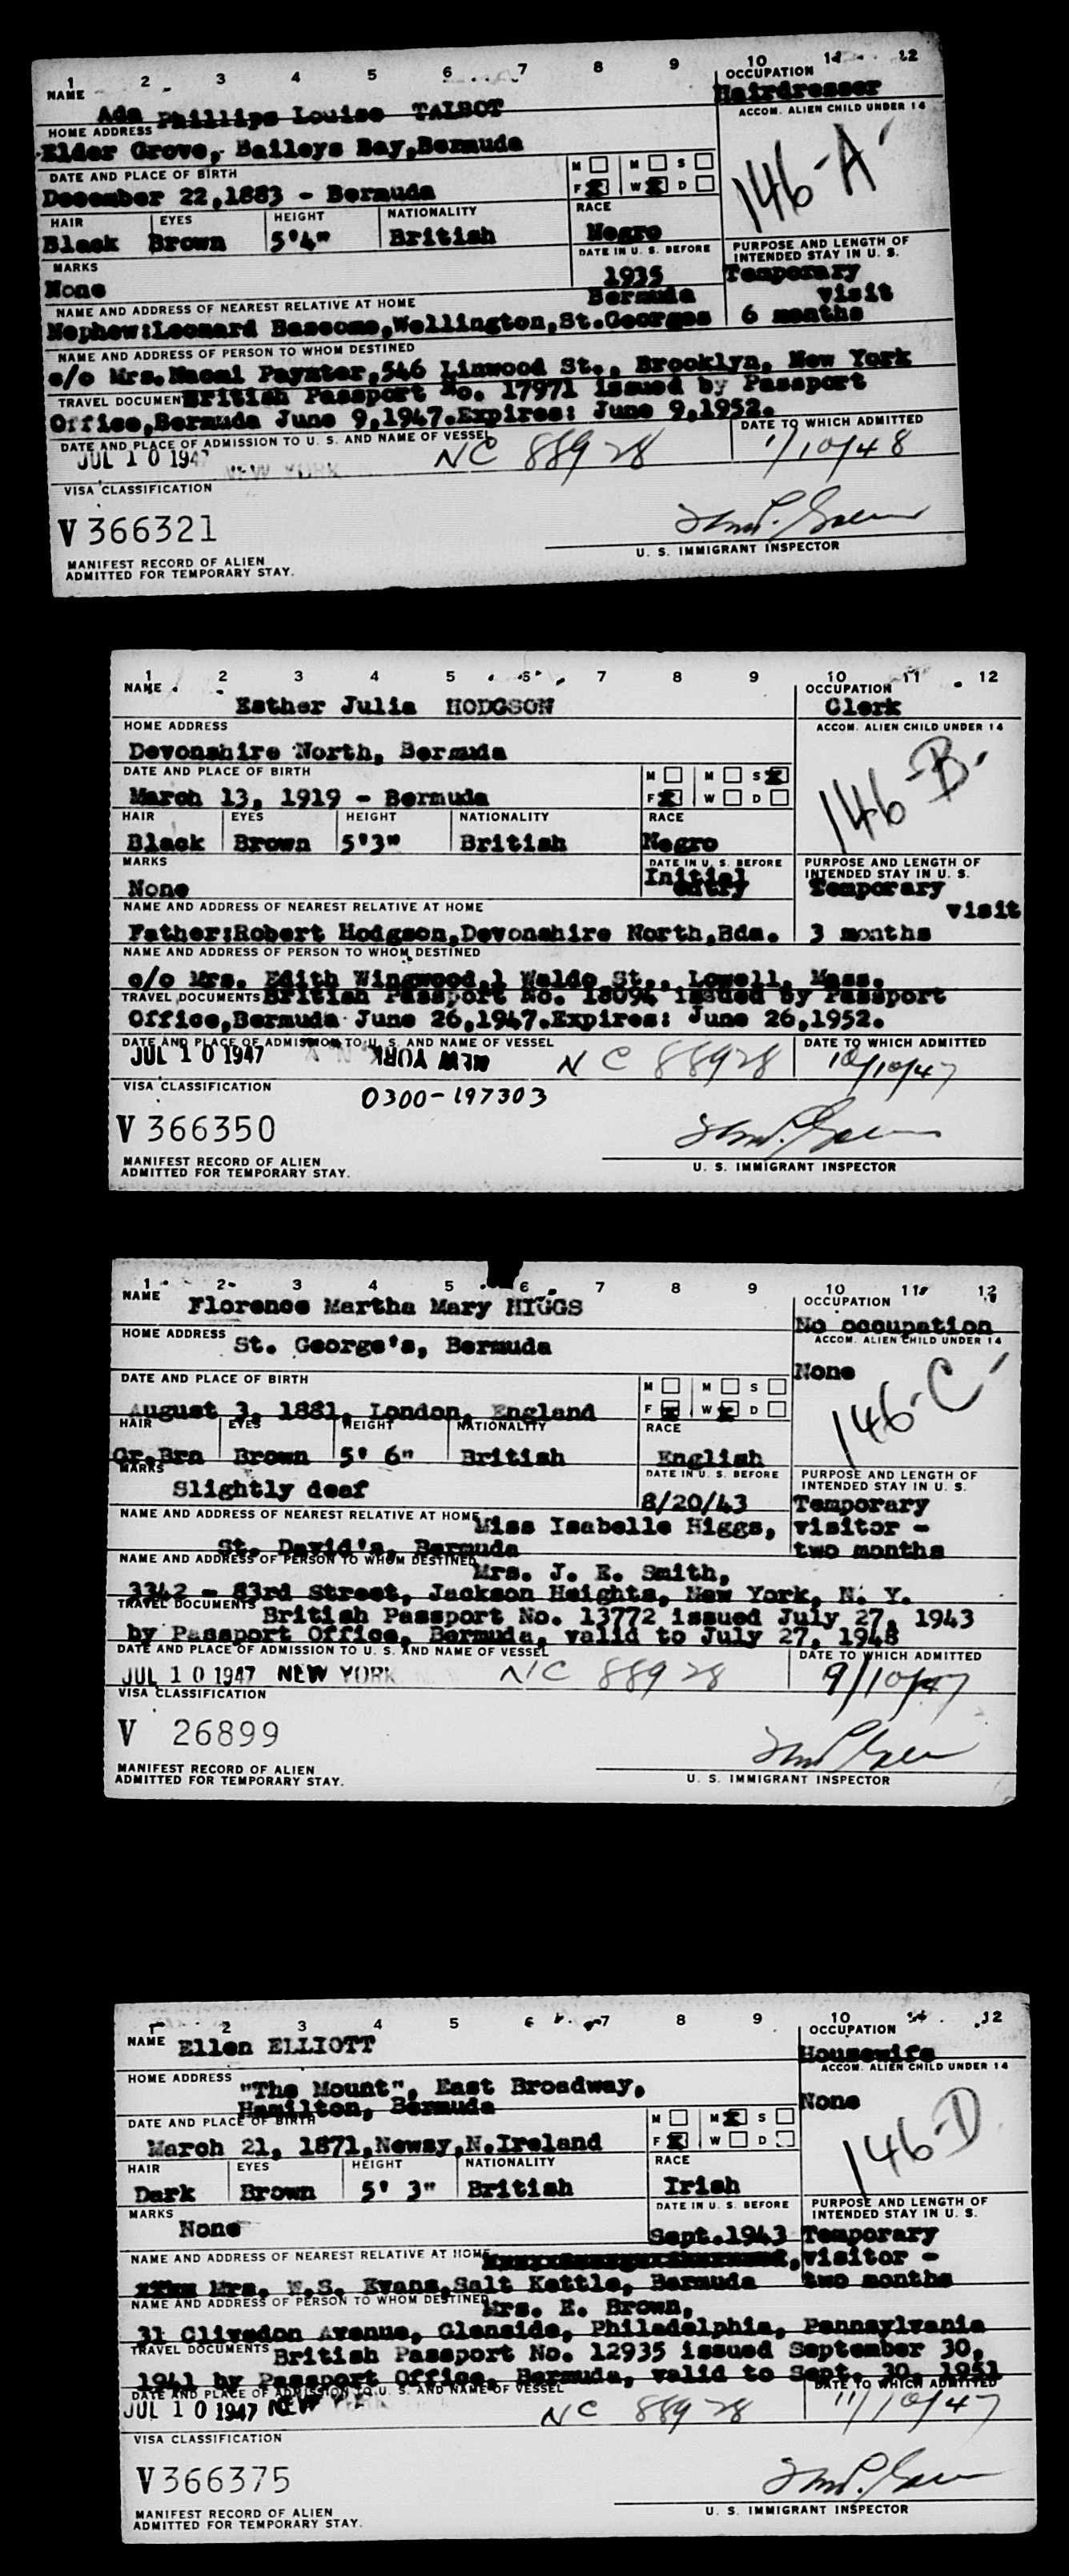 1 2 3 4 5 6 7 8 9 10 11 12
NAME Ada Phillips Louise TALBOT
OCCUPATION Hairdresser
HOME ADDRESS
Elder Grove, Baileys Bay, Bermuda
ACCOM. ALIEN CHILD UNDER 14
146-A
DATE AND PLACE OF BIRTH
December 22,1883 - Bermuda
M M S
F W D
HAIR EYES HEIGHT NATIONALITY RACE
Black Brown 5'4" British Negro
MARKS
None
DATE IN U. S. BEFORE
1935
Bermuda
PURPOSE AND LENGTH OF
INTENDED STAY IN U. S.
Temporary
visit
6 months
NAME AND ADDRESS OF NEAREST RELATIVE AT HOME
Nephew:Leonard Bascome,Wellington,St.Georges
NAME AND ADDRESS OF PERSON TO WHOM DESTINED
c/o Mrs.Naomi Paynter,546 Linwood St., Brooklyn, New York
TRAVEL DOCUMENT British Passport No. 17971 issued by Passport
Office,Bermuda June 9,1947.Expires: June 9,1952.
DATE AND PLACE OF ADMISSION TO U. S. AND NAME OF VESSEL
JUL 10 1947 NEW YORK NC 88928
DATE TO WHICH ADMITTED
1/10/48
VISA CLASSIFICATION
V 366321
U. S. IMMIGRANT INSPECTOR
MANIFEST RECORD OF ALIEN
ADMITTED FOR TEMPORARY STAY.
1 2 3 4 5 6 7 8 9 10 11 12
NAME
Esther Julia HODGSON
OCCUPATION
Clerk
HOME ADDRESS
Devonshire North, Bermuda
ACCOM. ALIEN CHILD UNDER 14
146-B
DATE AND PLACE OF BIRTH
March 13, 1919 - Bermuda
M M S
F W D
HAIR EYES HEIGHT NATIONALITY RACE
Black Brown 5'3" British Negro
MARKS
None
DATE IN U. S. BEFORE
Initial
entry
PURPOSE AND LENGTH OF
INTENDED STAY IN U. S.
Temporary
visit
3 months
NAME AND ADDRESS OF NEAREST RELATIVE AT HOME
Father:Robert Hodgson,Devonshire North,Bda.
NAME AND ADDRESS OF PERSON TO WHOM DESTINED
c/o Mrs. Edith Wingwood,1 Waldo St., Lowell, Mass.
TRAVEL DOCUMENTS British Passport No. 18094 issued by Passport
Office,Bermuda June 26,1947.Expires: June 26,1952.
DATE AND PLACE OF ADMISSION TO U. S. AND NAME OF VESSEL
JUL 10 1947 NEW YORK NC 88928
DATE TO WHICH ADMITTED
10/10/47
VISA CLASSIFICATION
0300-197303
V 366350
U. S. IMMIGRANT INSPECTOR
MANIFEST RECORD OF ALIEN
ADMITTED FOR TEMPORARY STAY.
1 2 3 4 5 6 7 8 9 10 11 12
NAME Florence Martha Mary HIGGS
OCCUPATION
No occupation
HOME ADDRESS St. George's, Bermuda
ACCOM. ALIEN CHILD UNDER 14
None
146-C
DATE AND PLACE OF BIRTH
August 3, 1881, London, England
M M S
F W D
HAIR EYES HEIGHT NATIONALITY RACE
Gr.Brn Brown 5' 6" British English
MARKS
Slightly deaf
DATE IN U. S. BEFORE
8/20/43
PURPOSE AND LENGTH OF
INTENDED STAY IN U. S.
Temporary
visitor -
two months
NAME AND ADDRESS OF NEAREST RELATIVE AT HOME Miss Isabelle Higgs,
St. David's, Bermuda
NAME AND ADDRESS OF PERSON TO WHOM DESTINED Mrs. J. E. Smith,
3342 - 83rd Street, Jackson Heights, New York, N. Y.
TRAVEL DOCUMENTS British Passport No. 13772 issued July 27, 1943
by Passport Office, Bermuda, valid to July 27, 1948
DATE AND PLACE OF ADMISSION TO U. S. AND NAME OF VESSEL
JUL 10 1947 NEW YORK NC 88928
DATE TO WHICH ADMITTED
9/10/47
VISA CLASSIFICATION
V 26899
U. S. IMMIGRANT INSPECTOR
MANIFEST RECORD OF ALIEN
ADMITTED FOR TEMPORARY STAY.
1 2 3 4 5 6 7 8 9 10 11 12
NAME Ellen ELLIOTT
OCCUPATION
Housewife
HOME ADDRESS "The Mount", East Broadway,
Hamilton, Bermuda
ACCOM. ALIEN CHILD UNDER 14
None
146-D
DATE AND PLACE OF BIRTH
March 21, 1871,Newsy,N.Ireland
M M S
F W D
HAIR EYES HEIGHT NATIONALITY RACE
Dark Brown 5' 3" British Irish
MARKS
None
DATE IN U. S. BEFORE
Sept.1943
PURPOSE AND LENGTH OF
INTENDED STAY IN U. S.
Temporary
visitor -
two months
NAME AND ADDRESS OF NEAREST RELATIVE AT HOME
Mrs. W.S. Evans,Salt Kettle, Bermuda
NAME AND ADDRESS OF PERSON TO WHOM DESTINED Mrs. E. Brown,
31 Clivedon Avenue, Glenside, Philadelphia, Pennsylvania
TRAVEL DOCUMENTS British Passport No. 12935 issued September 30,
1941 by Passport Office, Bermuda, valid to Sept. 30, 1951
DATE AND PLACE OF ADMISSION TO U. S. AND NAME OF VESSEL
JUL 10 1947 NEW YORK NC 88928
DATE TO WHICH ADMITTED
11/10/47
VISA CLASSIFICATION
V 366375
U. S. IMMIGRANT INSPECTOR
MANIFEST RECORD OF ALIEN
ADMITTED FOR TEMPORARY STAY.